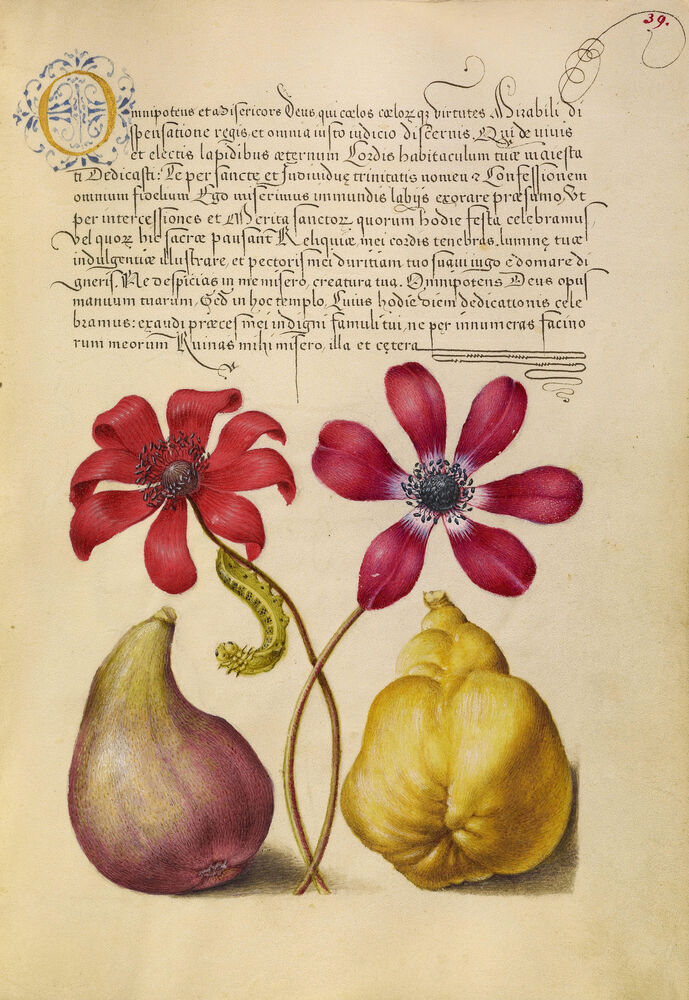 39.
Omnipotens et Misericors Deus, qui cœlos cœlorꝝ qꝫ virtutes Mirabili di
spensatione regis, et omnia iusto iudicio discernis, Qui de uiuis
et electis lapidibus æternum Cordis habitaculum tuæ maiesta
ti Dedicasti: Te per sanctę et Indiuiduę trinitatis nomen ⁊ Confessionem
omnium fidelium Ego miserimus immundis labijs exorare præsumo, Vt
per intercessiones et Merita sanctorꝝ quorum hodie festa celebramus
Vel quorꝝ hic sacræ pausant Reliquiæ, mei cordis tenebras, luminę tuæ
indulgentiæ illustrare, et pectoris mei duritiam tuo suaui iugo edomare di
gneris. Ne despicias in me misero, creatura tua. Omnipotens Deus opus
manuum tuarum, Sed in hoc templo, Cuius hodie diem dedicationis cele
bramus: exaudi præces mei indigni famuli tui, ne per innumeras facino
rum meorum Ruinas mihi misero, illa et cętera